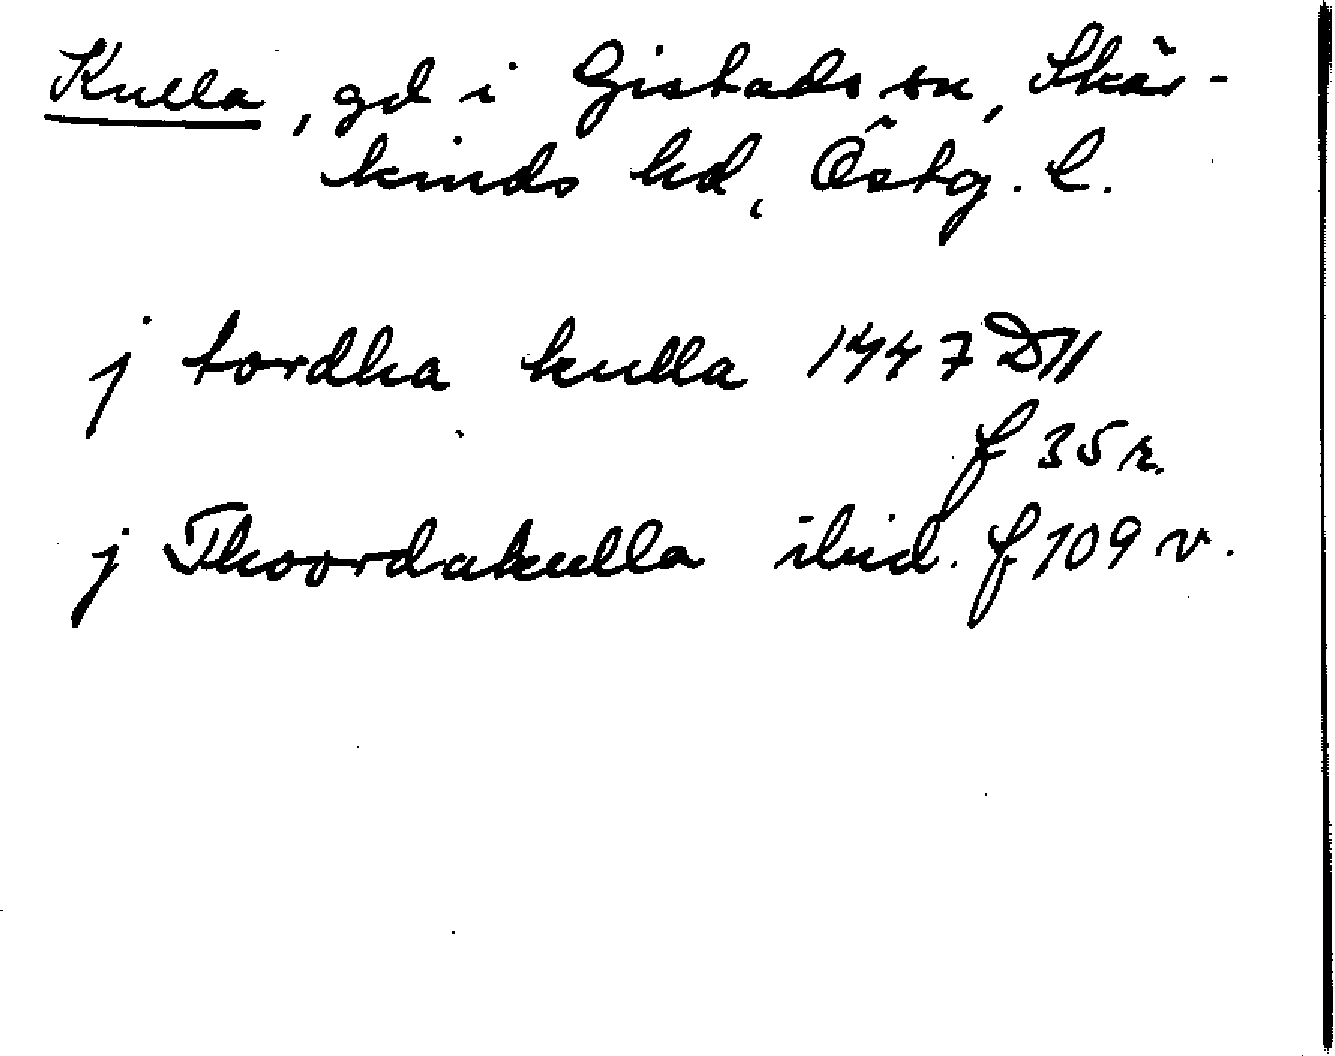 Kulla, gd i Gistads sn, Skär-
kinds hd, Östg. l.
j tordha kulla 1447 D11
f 35 r.
j Thoordakulla ibid. f 109 v.